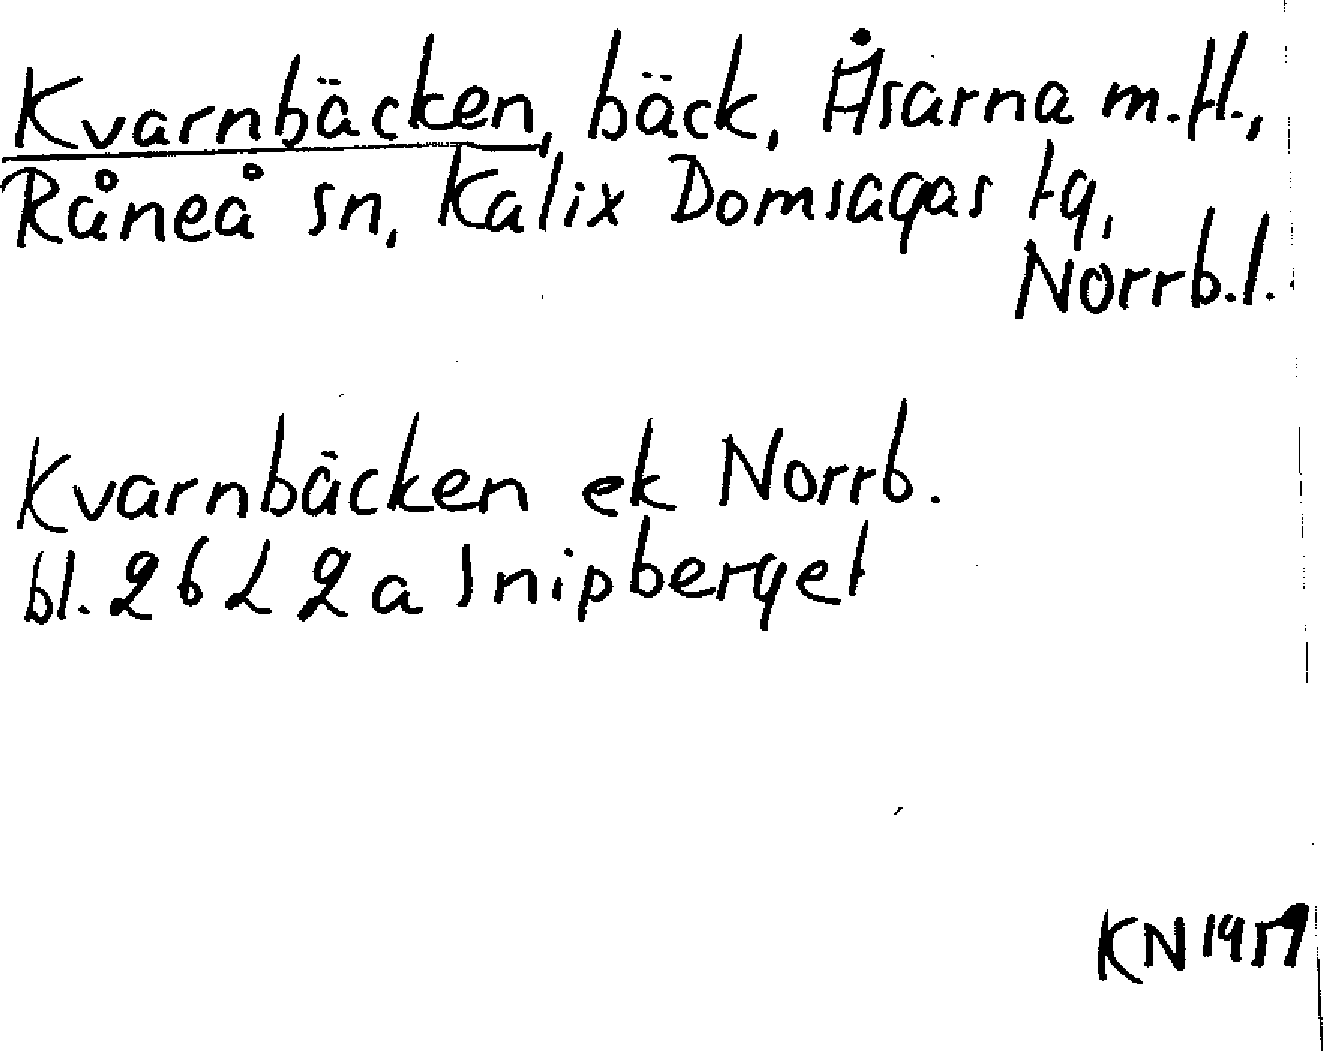 Kvarnbäcken, bäck, Åsarna m.fl.,
Råneå sn, Kalix Domsagas tg,
Norrb.l.
Kvarnbäcken ek Norrb.
bl. 2622a Snipberget
KN 1959